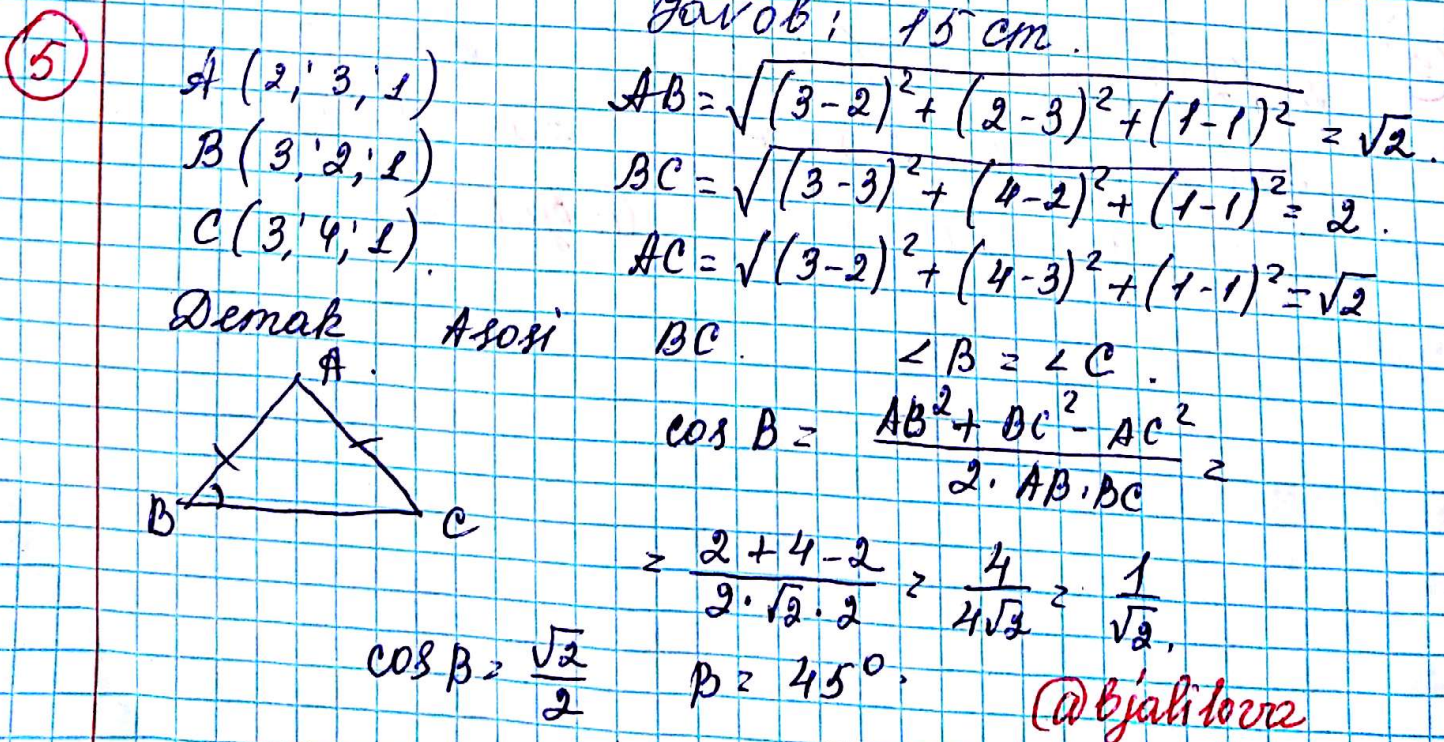 Javob: 15 cm.
5
A (2; 3; 1)
AB = √((3-2)² + (2-3)² + (1-1)²) = √2.
B (3; 2; 1)
BC = √((3-3)² + (4-2)² + (1-1)²) = 2.
C (3; 4; 1).
AC = √((3-2)² + (4-3)² + (1-1)²) = √2
Demak Asosi BC. ∠B = ∠C.
A
B
C
cos B = (AB² + BC² - AC²)/(2·AB·BC) =
= (2+4-2)/(2·√2·2) = 4/(4√2) = 1/√2.
cos B = √2/2 B = 45°.
@bjalilovva